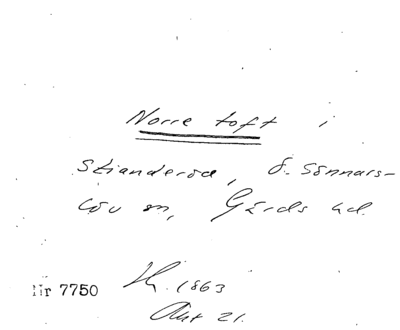 Norre toft i
Skianderöd, Ö. Sönnars-
löv sn, Gärds hd.
Nr 7750 H. 1863
Akt 21.